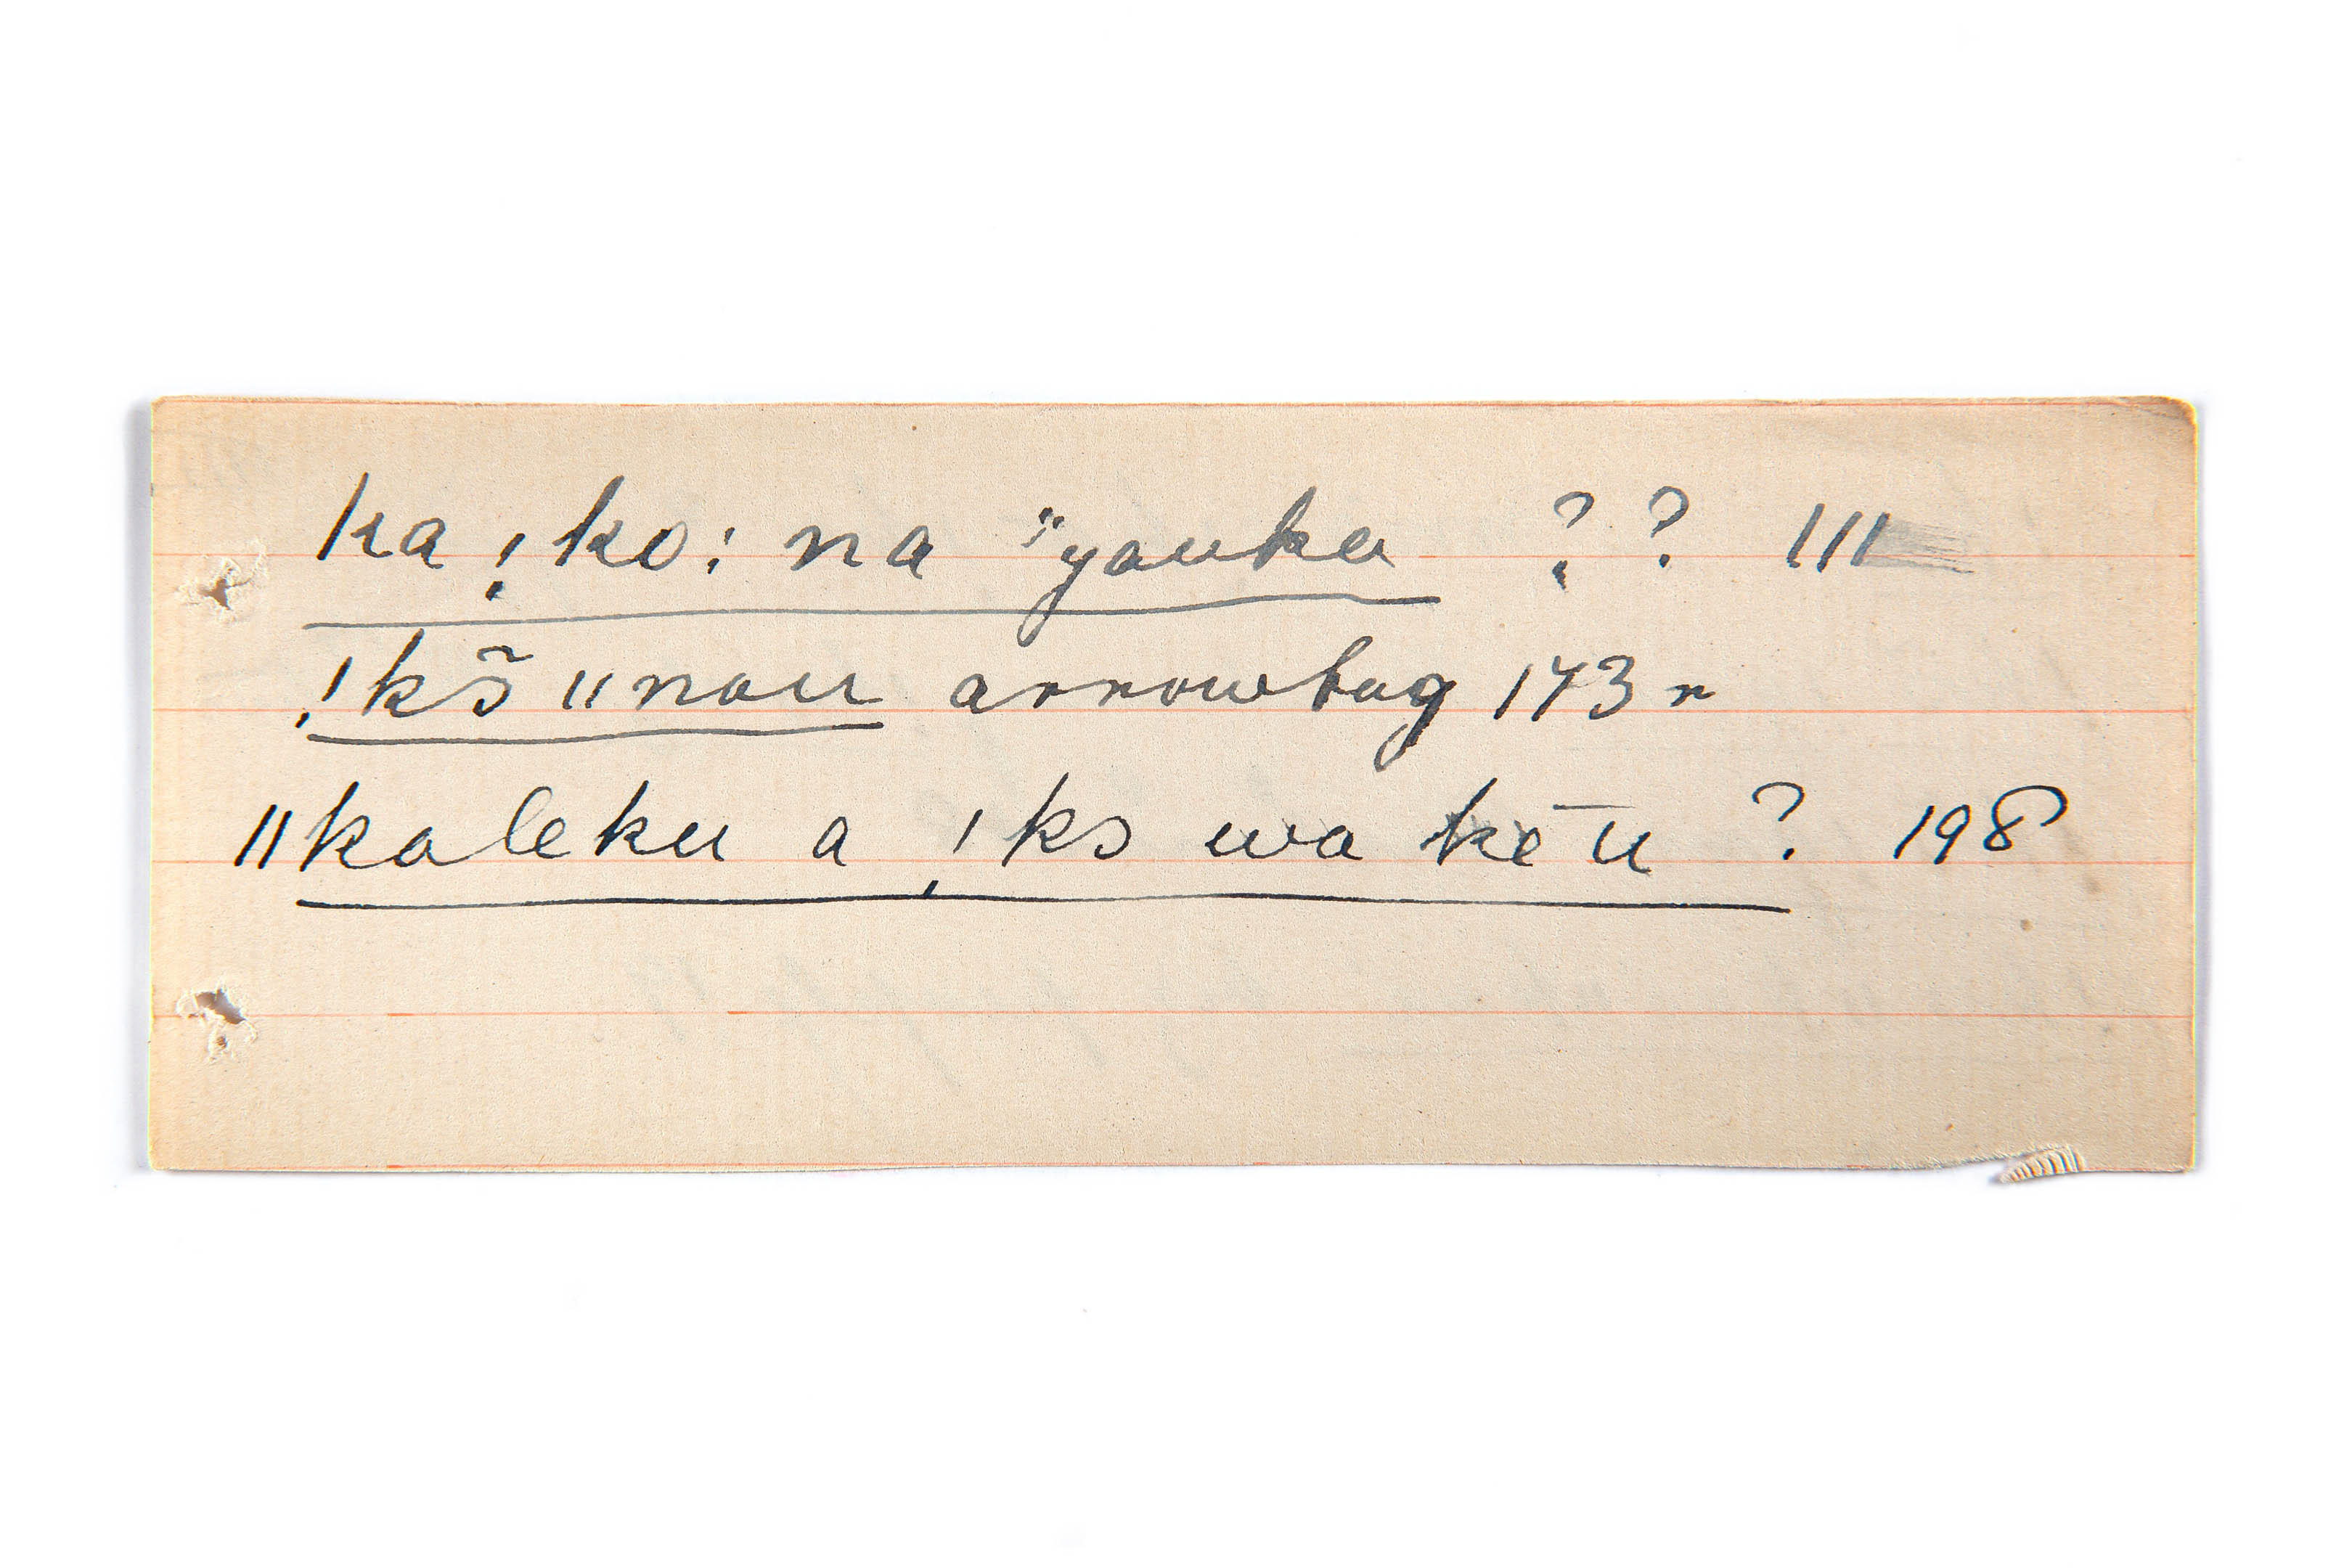 ka !ko: na "yauka ? ? 111
!kõ ǁnau arrowbag 173 n
ǁkaleku a !ko wa kē u ? 198